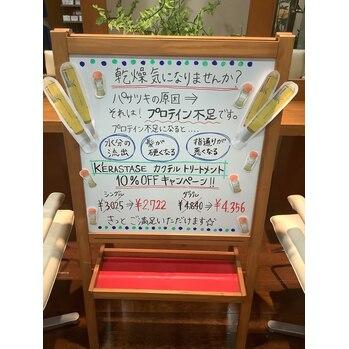 乾燥気になりませんか?
パサツキの原因⇒
それは!プロテイン不足です。
プロテイン不足になると…
水分の流出 髪が硬くなる 指通りが悪くなる
KÉRASTASE カクテルトリートメント
10%OFFキャンペーン!!
シングル ダブル
¥3,025→¥2,722 ¥4,840→¥4,356
きっとご満足いただけます☆